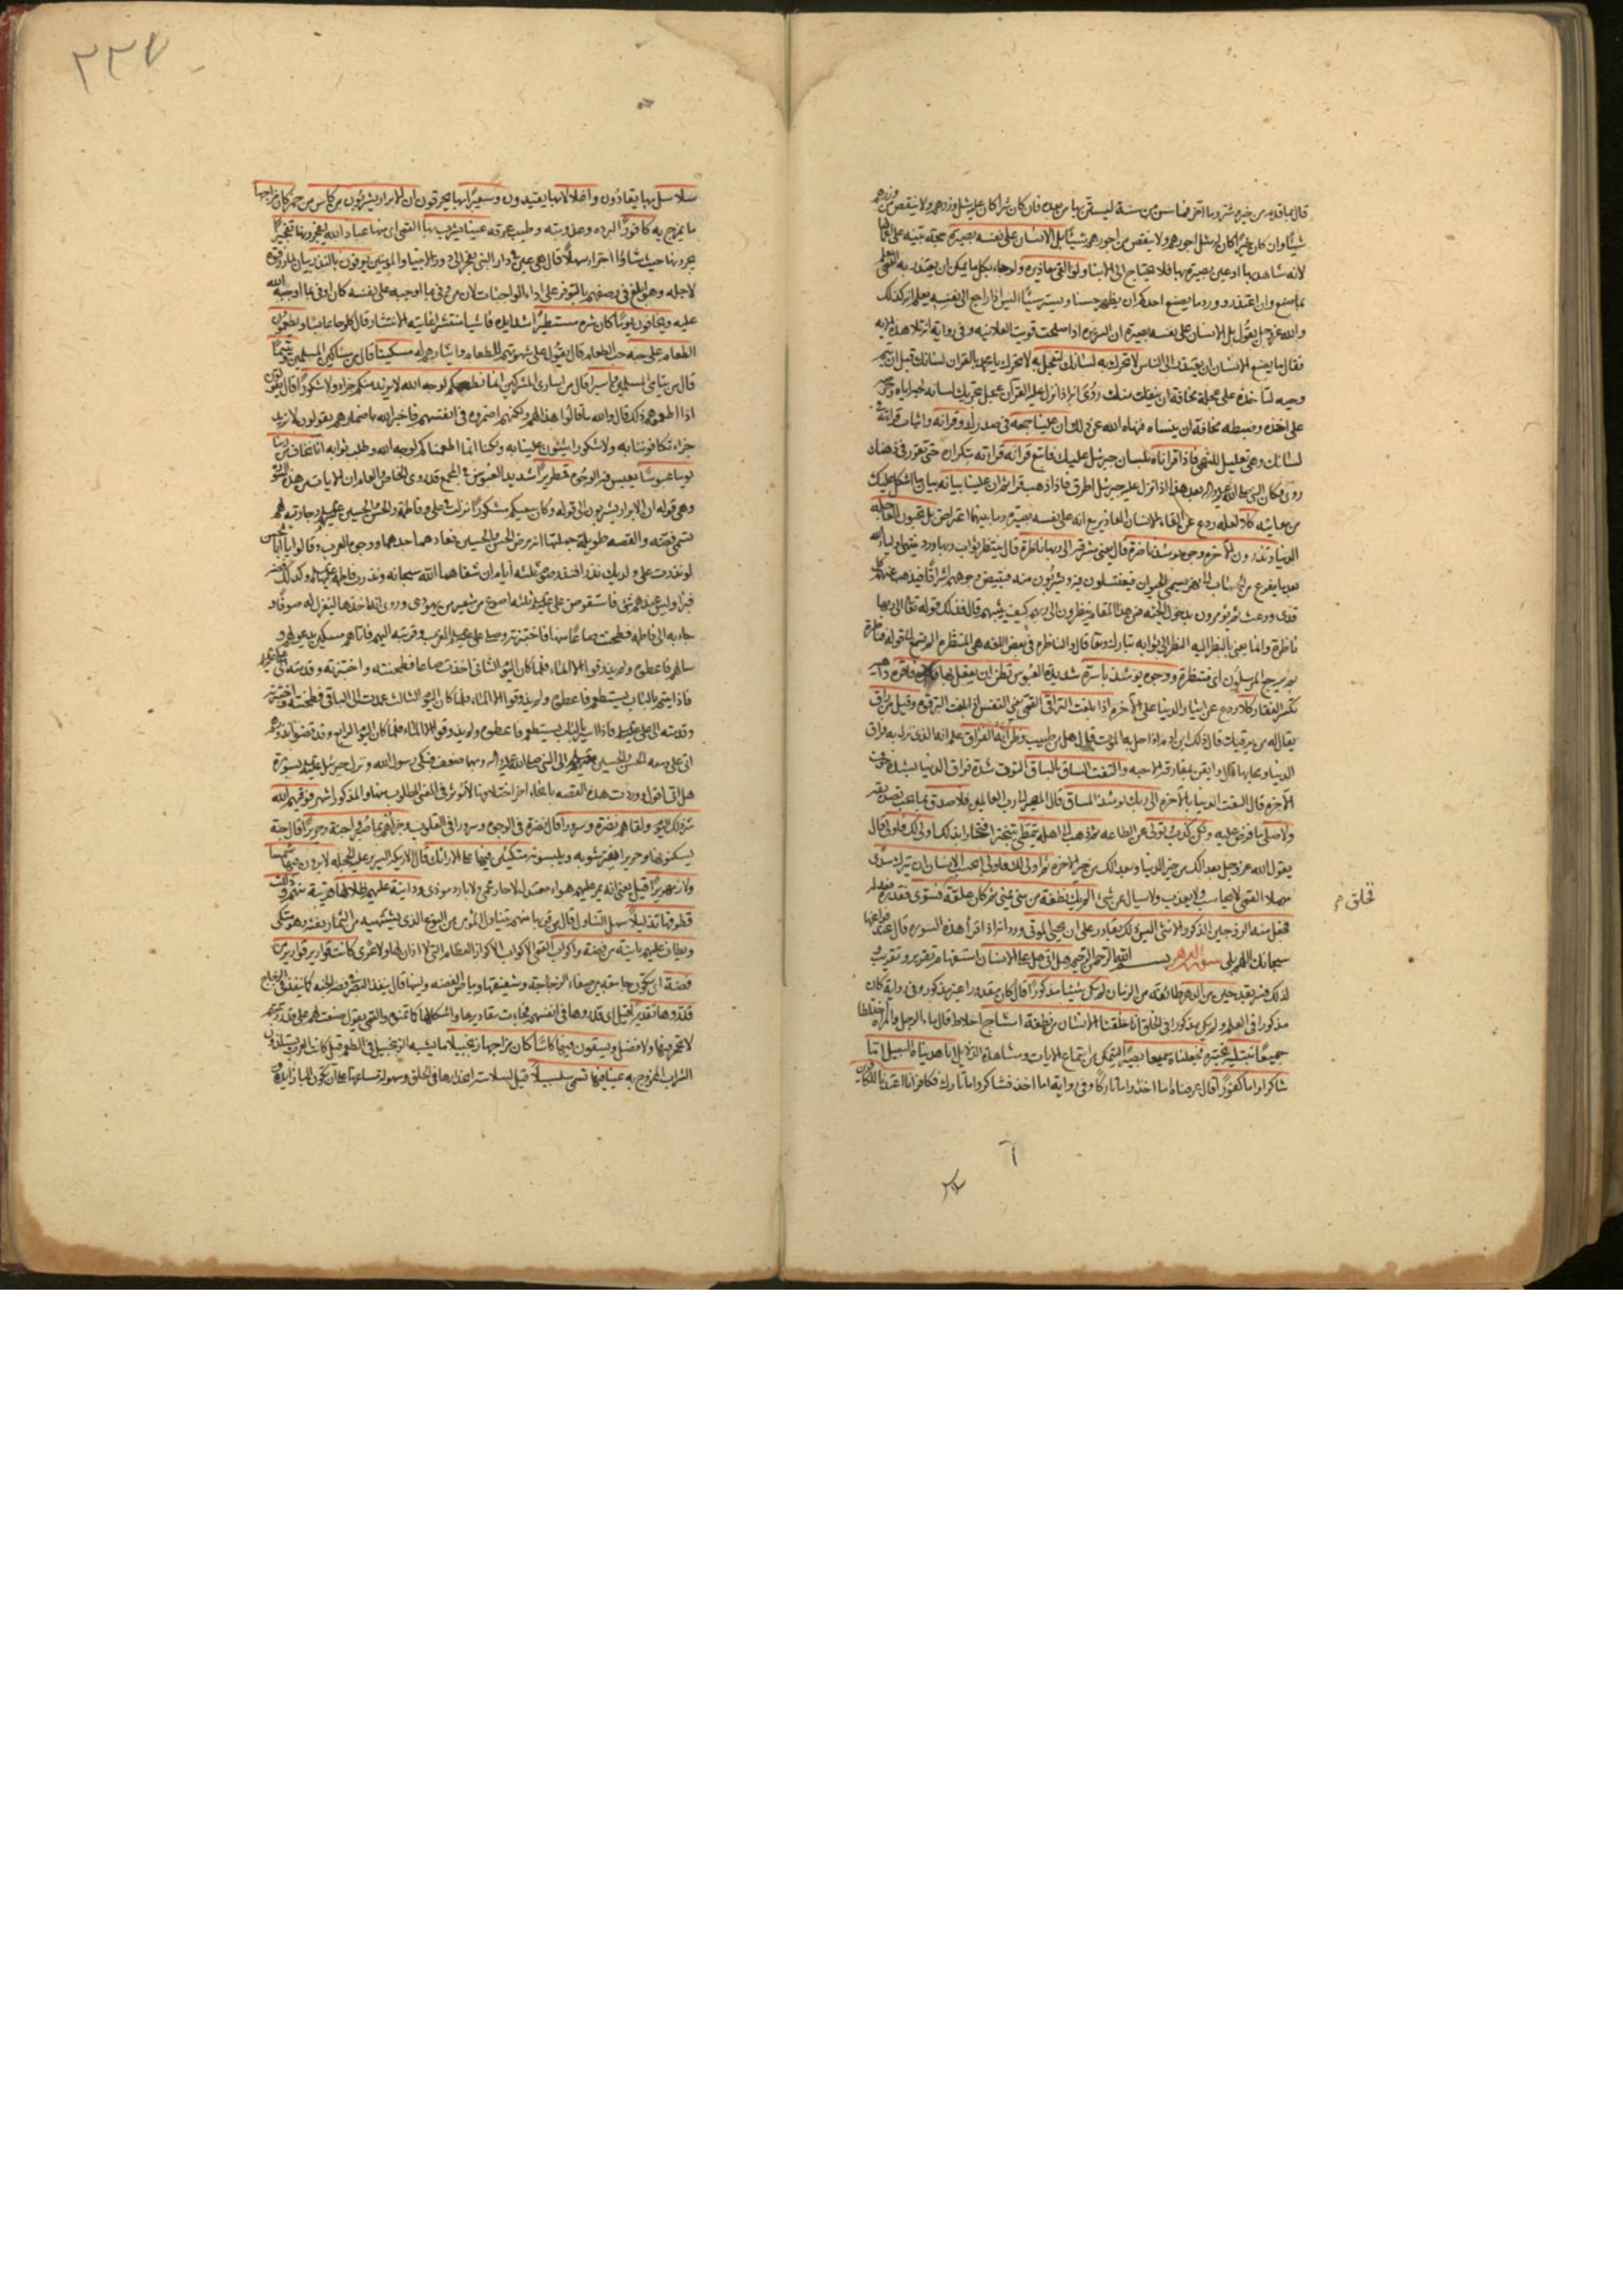 قال بما قدم من خير وشر وما اخر فما سن من سنة ليستن بها من بعده فان كان شرا كان عليه مثل وزرهم ولا ينقص من وزرهم
شيئا وان كان خيرا كان له مثل اجورهم ولا ينقص من اجورهم شيئا بل الانسان على نفسه بصيرة حجة بينة على اعمالها
لانه شاهد بها او عين بصيرة بها فلا يحتاج الى الانباء ولو القى معاذيره ولو جاء بكل ما يمكن ان يعتذر به القمي يعلم
ما صنع وان اعتذر وورد ما يصنع احدكم ان يظهر حسنا ويستر سيئا اليس اذا راجع الى نفسه يعلم انه ليس كذلك
والله عز وجل يقول بل الانسان على نفسه بصيرة ان السريرة اذا صلحت قويت العلانية وفي رواية انه تلا هذه الاية
فقال ما يصنع الانسان ان يعتذر الى الناس لا تحرك به لسانك لتعجل به لا تحرك يا محمد بالقران لسانك قبل ان يتم
وحيه لتاخذه على عجلة مخافة ان ينفلت منك روي انه اذا نزل عليه القران عجل بتحريك لسانه لحبه اياه وحرصه
على اخذه وضبطه مخافة ان ينساه فنهاه الله عن ذلك ان علينا جمعه في صدرك وقرانه واثبات قرائته في
لسانك وهو تعليل للنهي فاذا قراناه بلسان جبرئيل عليك فاتبع قرانه قرائته بتكراره حتى تقرر في ذهنك
روي فكان النبي صلى الله عليه واله بعد هذا اذا نزل عليه جبرئيل اطرق فاذا ذهب قرا ثم ان علينا بيانه بيان ما اشكل عليك
من معانيه كلا لعله ردع عن القاء الانسان المعاذير مع انه على نفسه بصيرة وما بينهما اعتراض بل تحبون العاجلة
الدنيا وتذرون الاخرة وجوه يومئذ ناضرة قال يعني مشرقة الى ربها ناظرة قال ينتظر ثواب ربها وورد ينتهي اولياء الله
بعد ما يفرغ من الحساب الى نهر يسمى الحيوان فيغتسلون فيه ويشربون منه فتبيض وجوههم اشراقا فيذهب عنهم كل
قذى ووعث ثم يؤمرون بدخول الجنة فمن هذا المقام ينظرون الى ربهم كيف يثيبهم قال فذلك قوله تعالى الى ربها
ناظرة وانما يعني بالنظر اليه النظر الى ثوابه تبارك وتعالى قال والناظرة في بعض اللغة هي المنتظرة الم تسمع الى قوله فناظرة
بم يرجع المرسلون اي منتظرة ووجوه يومئذ باسرة شديدة العبوس تظن ان يفعل بها فاقرة داهية
تكسر الفقار كلا ردع عن ايثار الدنيا على الاخرة اذا بلغت التراقي القمي يعني النفس اذا بلغت الترقوة وقيل من راق
يقال له من يرقيك قال ذلك ابن ادم اذا حل به الموت قال هل من طبيب وظن انه الفراق علم انه الذي نزل به فراق
الدنيا ومحابها قال وايقن بمفارقة الاحبة والتفت الساق بالساق التوت شدة فراق الدنيا بشدة خوف
الاخرة قال التفت الدنيا بالاخرة الى ربك يومئذ المساق قال المصير الى رب العالمين فلا صدق بما يجب تصديقه
ولا صلى ما فرض عليه ولكن كذب وتولى عن الطاعة ثم ذهب الى اهله يتمطى يتبختر افتخارا بذلك اولى لك فاولى قال
يقول الله عز وجل بعدا لك من خير الدنيا وبعدا لك من خير الاخرة ثم اولى لك فاولى ايحسب الانسان ان يترك سدى
مهملا القمي لا يحاسب ولا يعذب ولا يسال عن شيء الم يك نطفة من مني يمنى ثم كان علقة فخلق فسوى فقدره فعدله
فجعل منه الزوجين الذكر والانثى اليس ذلك بقادر على ان يحيي الموتى ورد انه اذا قرا هذه السورة قال عند فراغها
سبحانك اللهم بلى سورة الدهر بسم الله الرحمن الرحيم هل اتى على الانسان استفهام تقرير وتقريب
لذلك فسر بقد حين من الدهر طائفة من الزمان لم يكن شيئا مذكورا قال كان مقدورا غير مذكور وفي رواية كان
مذكورا في العلم ولم يكن مذكورا في الخلق انا خلقنا الانسان من نطفة امشاج اخلاط قال ماء الرجل والمراة اختلطا
جميعا نبتليه نختبره فجعلناه سميعا بصيرا ليتمكن من استماع الايات ومشاهدة الدلايل انا هديناه السبيل اما
شاكرا واما كفورا قال عرفناه اما اخذ واما تارك وفي رواية اما اخذ فشاكر واما تارك فكافر انا اعتدنا للكافرين
تخلق م
٢٢٧
سلاسل بها يقادون واغلالا بها يقيدون وسعيرا بها يحرقون ان الابرار يشربون من كاس من خمر كان مزاجها
ما يمزج به كافورا لبرده وعذوبته وطيب عرفه عينا يشرب بها القمي اي منها عباد الله يفجرونها تفجيرا
يجرونها حيث شاؤا اجراء سهلا قال هي عين في دار النبي يفجر الى دور الانبياء والمؤمنين يوفون بالنذر بيان لما رزقوه
لاجله وهو ابلغ في وصفهم بالتوفر على اداء الواجبات لان من وفى بما اوجبه على نفسه كان اوفى بما اوجبه الله
عليه ويخافون يوما كان شره مستطيرا شدايده فاشيا منتشرا غاية الانتشار قال كلوحا عابسا ويطعمون
الطعام على حبه حب الطعام قال يقول على شهوتهم للطعام وايثارهم له مسكينا قال من مساكين المسلمين ويتيما
قال من يتامى المسلمين واسيرا قال من اسارى المشركين انما نطعمكم لوجه الله لا نريد منكم جزاء ولا شكورا قال يقولون
اذا اطعموهم ذلك قال والله ما قالوا هذا لهم ولكنهم اضمروه في انفسهم فاخبر الله باضمارهم يقولون لا نريد
جزاء تكافوننا به ولا شكورا تثنون علينا به ولكنا انما اطعمناكم لوجه الله وطلب ثوابه انا نخاف من ربنا
يوما عبوسا يعبس فيه الوجوه قمطريرا شديد العبوس في المجمع قد روى الخاص والعام ان الايات من هذه السورة
وهي قوله ان الابرار يشربون الى قوله وكان سعيكم مشكورا نزلت في علي وفاطمة والحسن والحسين عليهم السلام وجارية لهم
تسمى فضة والقصة طويلة جملتها انه مرض الحسن والحسين فعادهما جدهما ووجوه العرب وقالوا يا ابا الحسن
لو نذرت على ولديك نذرا فنذر صوم ثلثة ايام ان شفاهما الله سبحانه ونذرت فاطمة عليها السلام وكذلك فضة
فبرئا وليس عندهم شيء فاستقرض علي عليه السلام ثلثة اصوع من شعير من يهودي وروي انه اخذها ليغزل له صوفا و
جاء به الى فاطمة فطحنت صاعا منها فاختبزته وصلى علي عليه السلام المغرب وقربته اليهم فاتاهم مسكين يدعو لهم و
سالهم فاعطوه ولم يذوقوا الا الماء فلما كان اليوم الثاني اخذت صاعا فطحنته واختبزته وقدمته الى علي عليه السلام
فاذا يتيم بالباب يستطعم فاعطوه ولم يذوقوا الا الماء فلما كان اليوم الثالث عمدت الى الباقي فطحنته واختبزته
وقدمته الى علي عليه السلام فاذا اسير بالباب يستطعم فاعطوه ولم يذوقوا الا الماء فلما كان اليوم الرابع وقد قضوا نذورهم
اتى علي ومعه الحسن والحسين عليهم السلام الى النبي صلى الله عليه واله وبهما ضعف فبكى رسول الله ونزل جبرئيل عليه السلام بسورة
هل اتى اقول وردت هذه القصة بانحاء اخر اختلافها لا تؤثر في المعنى المطلوب منها والمذكور اشهر فوقيهم الله
شر ذلك اليوم ولقاهم نضرة وسرورا قال نضرة في الوجوه وسرورا في القلوب وجزاهم بما صبروا جنة وحريرا قال جنة
يسكنونها وحريرا يفترشونه ويلبسونه متكئين فيها على الارائك قال الاريكة السرير عليه الحجلة لا يرون فيها شمسا
ولا زمهريرا قيل يعني انه يمر عليهم هواء معتدل لا حار محمي ولا بارد موذي ودانية عليهم ظلالها قريبة منهم وذللت
قطوفها تذليلا سهل التناول قال من قربها منهم يتناول المؤمن من النوع الذي يشتهيه من الثمار بفيه وهو متكئ
ويطاف عليهم بانية من فضة واكواب القمي الاكواب الاكواز العظام التي لا اذان لها ولا عرى كانت قوارير قوارير من
فضة اي تكون جامعة بين صفاء الزجاجة وشفيفها وبياض الفضة ولينها قال ينفذ البصر في فضة الجنة كما ينفذ في الزجاج
قدروها تقديرا قيل اي قدروها في انفسهم فجاءت مقاديرها واشكالها كما تمنوه والقمي يقول صنعت لهم على قدر رتبتهم
لا تحجر فيها ولا فضل ويسقون فيها كاسا كان مزاجها زنجبيلا ما يشبه الزنجبيل في الطعم قيل كانت العرب يستلذون
الشراب الممزوج به عينا فيها تسمى سلسبيلا قيل لسلاسة انحدارها في الحلق وسهولة مساغها على ان تكون الباء زايدة